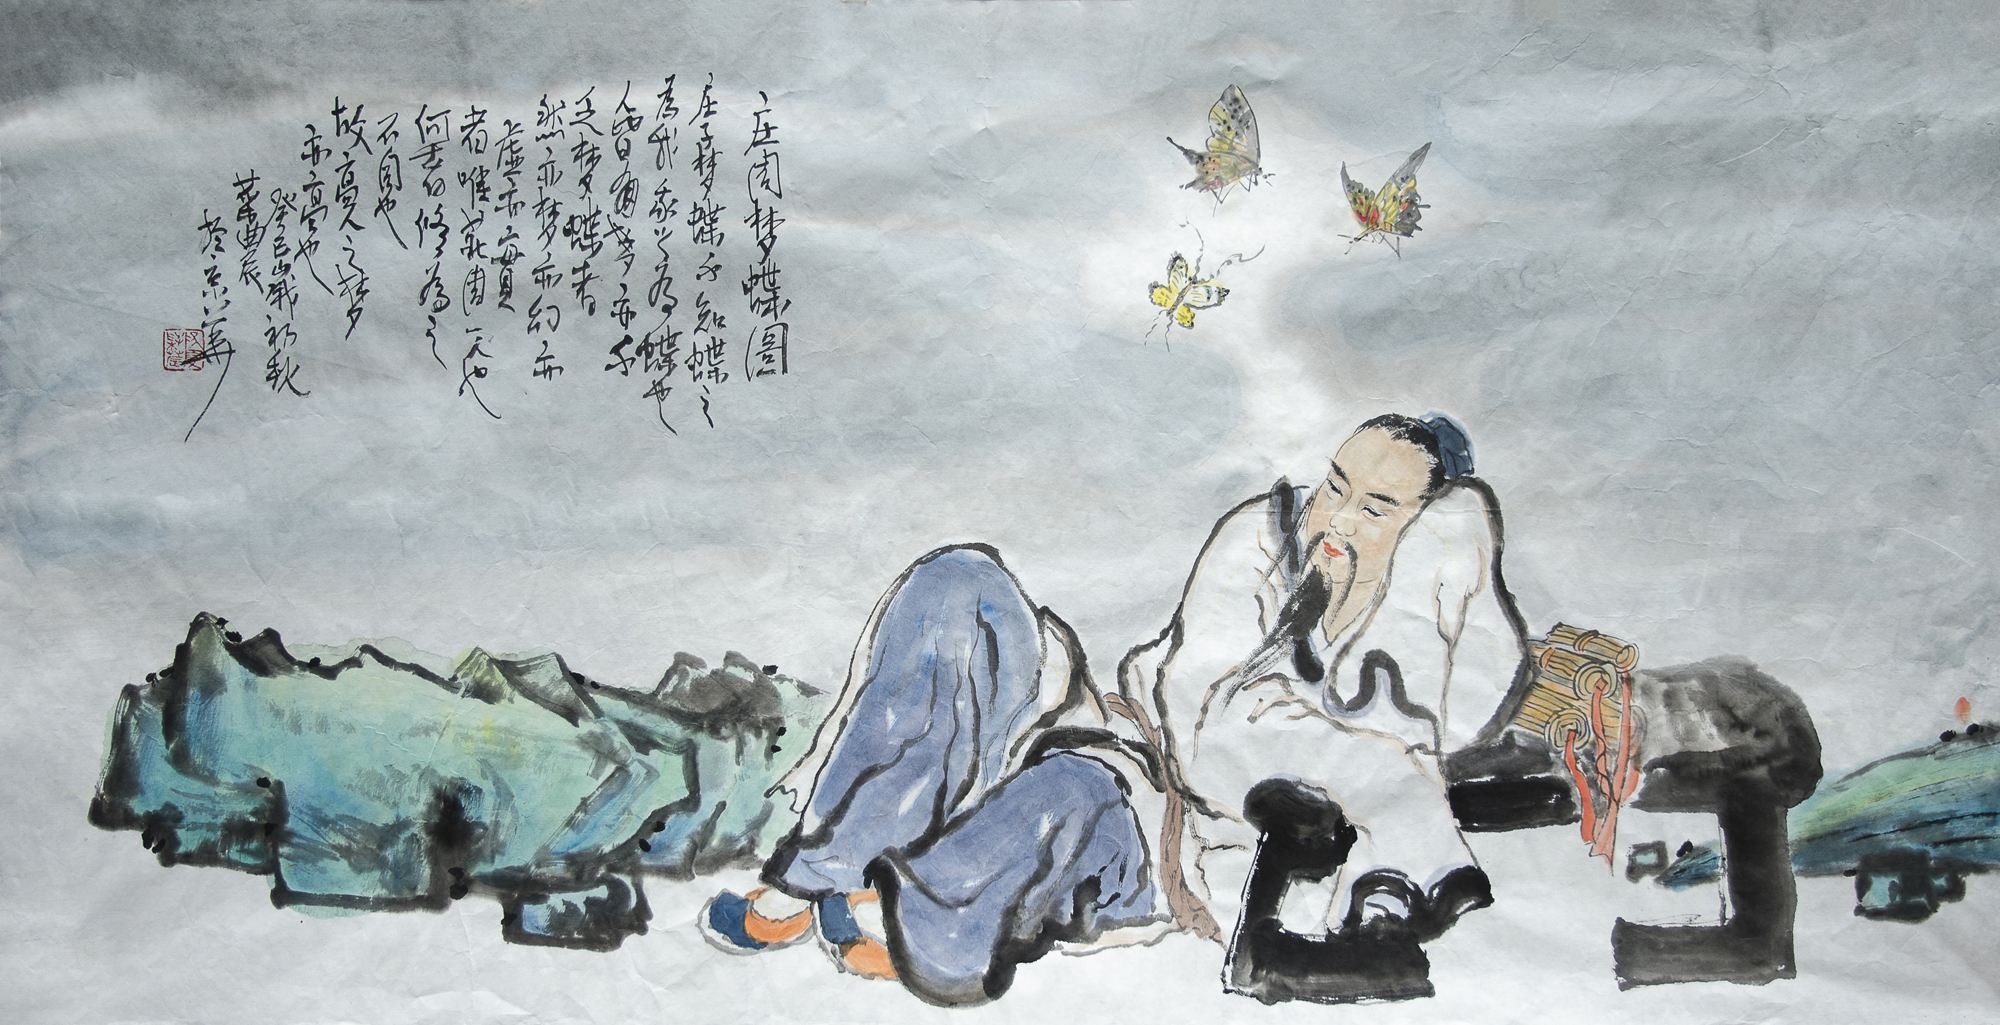 庄周梦蝶图
庄子梦蝶不知蝶之
为我我之为蝶也
人皆有梦亦不
乏梦蝶者
然亦梦亦幻亦
虚亦实
者唯庄周一人也
何
不同也
故高人之梦
亦高也
癸巳岁初秋
叶曲辰